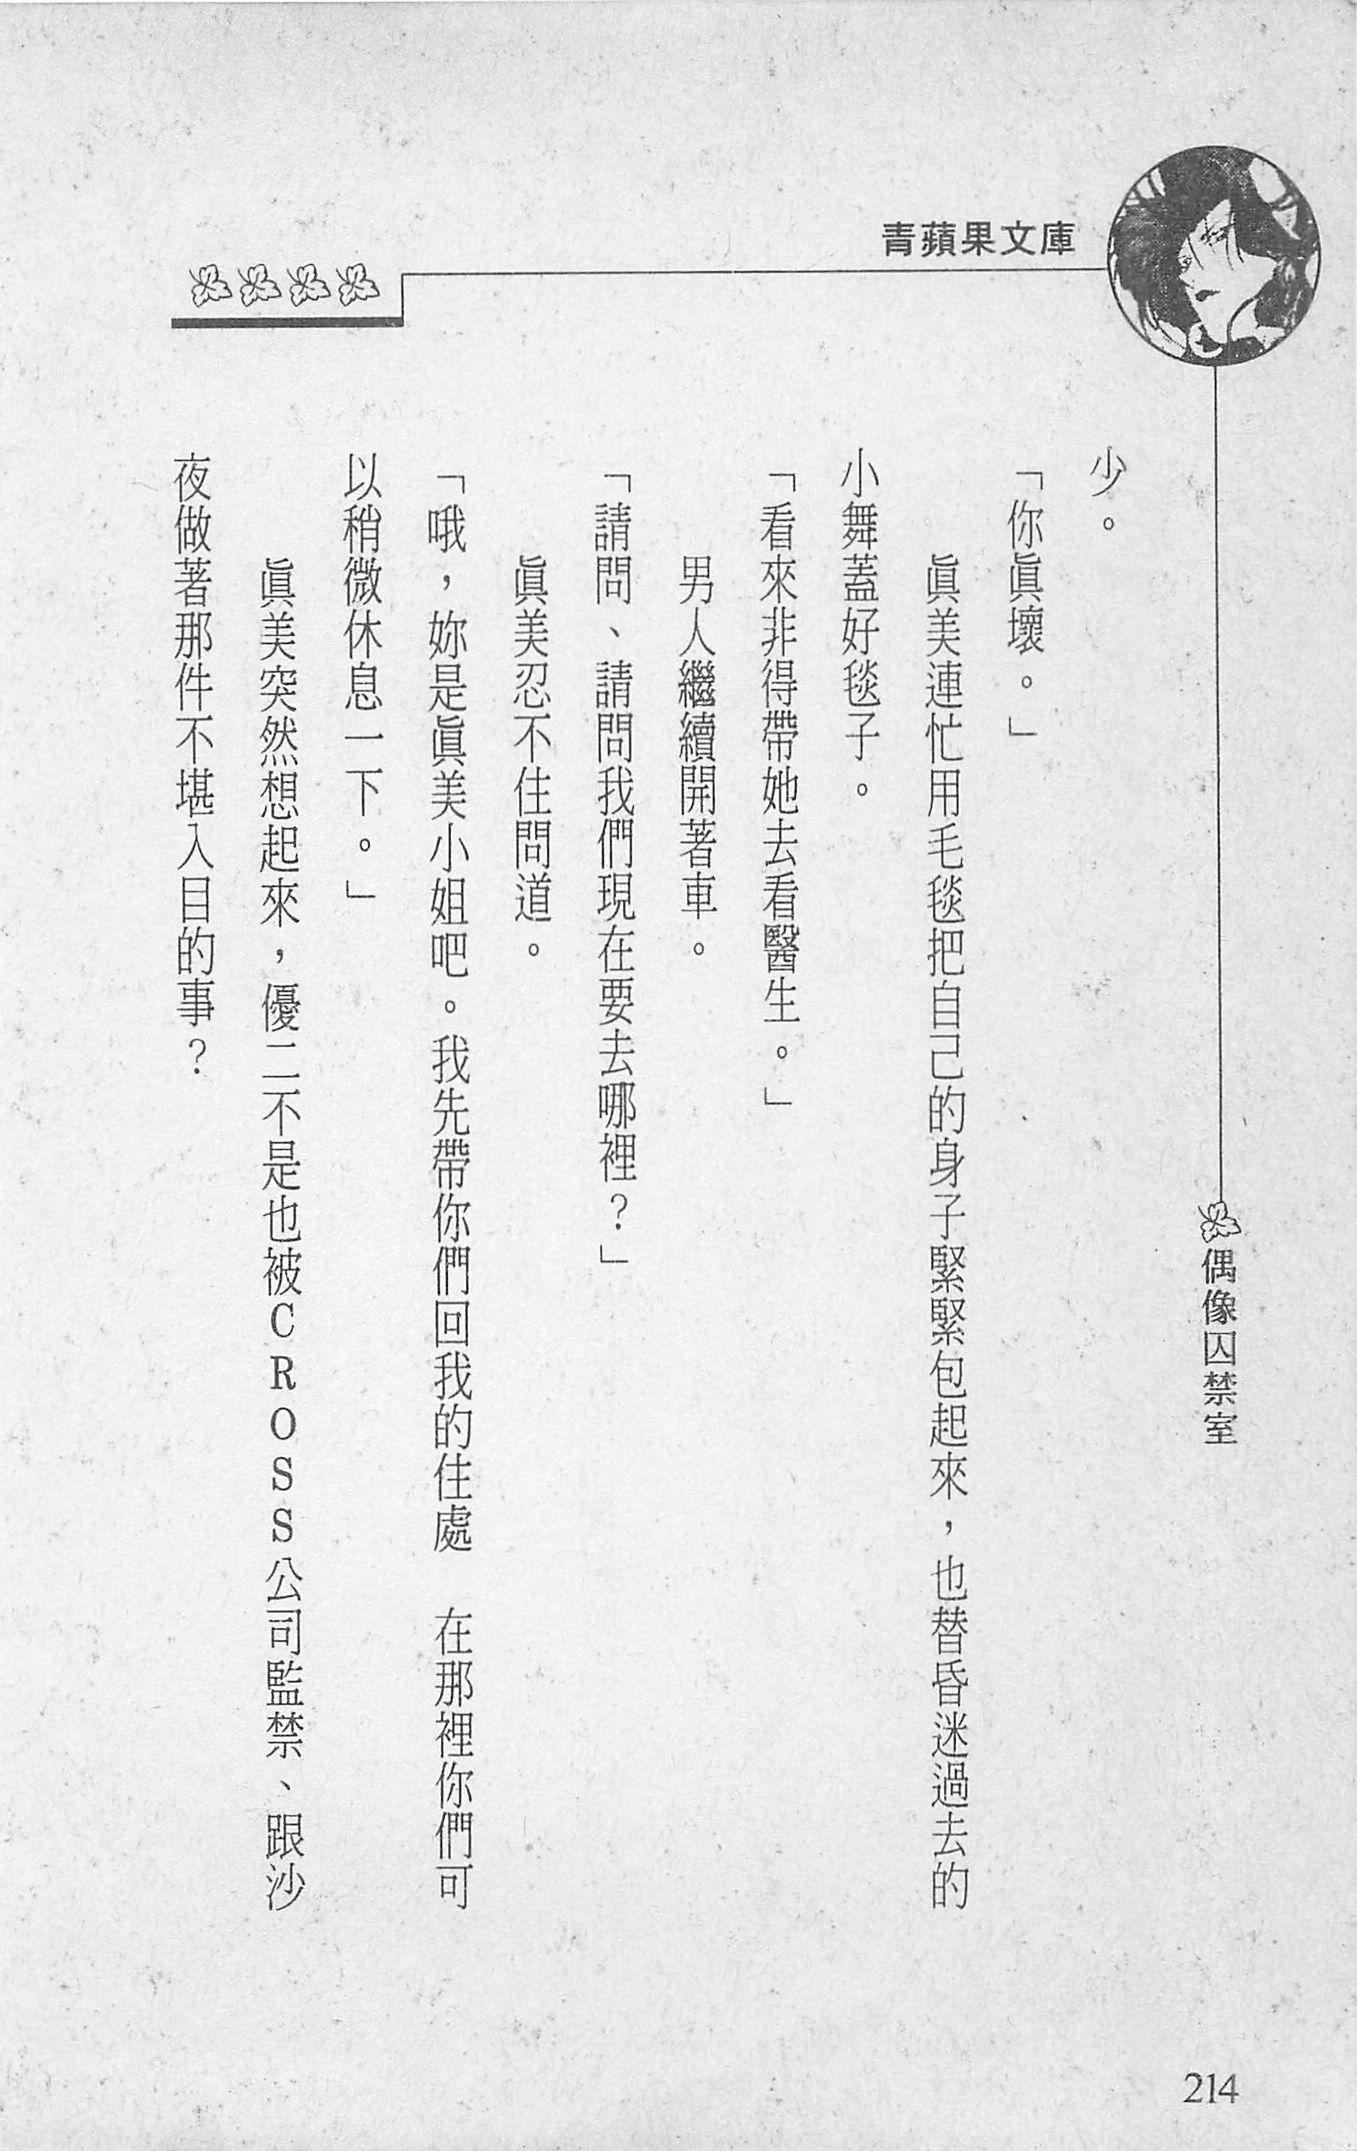 青蘋果文庫
偶像囚禁室
少。
「你眞壞。」
眞美連忙用毛毯把自己的身子緊緊包起來，也替昏迷過去的
小舞蓋好毯子。
「看來非得帶她去看醫生。」
男人繼續開著車。
「請問、請問我們現在要去哪裡？」
眞美忍不住問道。
「哦，妳是眞美小姐吧。我先帶你們回我的住處　在那裡你們可
以稍微休息一下。」
眞美突然想起來，優二不是也被CROSS公司監禁、跟沙
夜做著那件不堪入目的事？
214